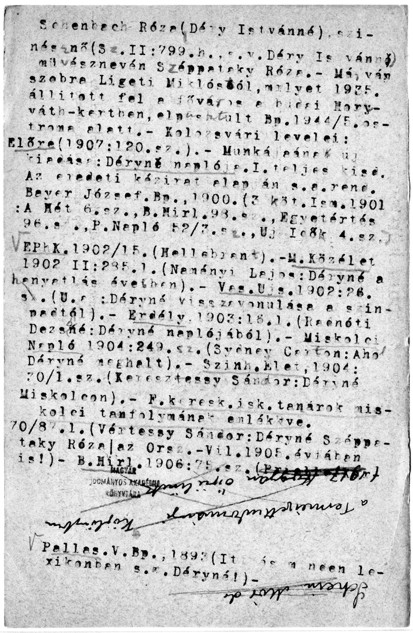 Schenbach Róza(Déry Istvánné), szi-
nésznő(Sz.II:799.h., s.v.Déry Istvánné)
művésznevén Széppataky Róza.- Márvány
szobra Ligeti Miklóstól, melyet 1935.
állitott fel a főváros a budai Hor-
váth-kertben, elpusztult Bp.1944/5.os-
troma alatt.- Kolozsvári levelei:
Előre(1907:120.sz.).- Munkájának új
kiadása: Déryné naplója.I.teljes kiad.
Az eredeti kézirat alapján s.a.rend.
Bayer József.Bp.,1900.(3 köt.Ism.1901
:A Hét 6.sz.,B.Hirl.98.sz.,Egyetértés
96.sz.,P.Napló 52/ sz., Uj Idők 4.sz.
EPhK.1902/15.(Hellebrant).-M.Közélet
1902 II:285.l.(Naményi Lajos:Déryné a
hanyatlás éveiben).- Vas.Ujs.1902:26.
s.(U.a.:Déryné visszavonulása a szin-
padtól).- Erdély.1903:16.l.(Radnóti
Dezsőné:Déryné naplójából).- Miskolci
Napló 1904:249.sz.(Sydney Carton:Ahol
Déryné meghalt).- Szinh.Élet,1904:
30/1.sz.(Keresztessy Sándor:Déryné
Miskolcon).- F.keresk.isk.tanárok mis-
kolci tanfolyamának emlékkve.
70/87.l.(Vértessy Sándor:Déryné Széppa-
taky Róza|az Orsz.-Vil.1905.évfában
is!)- B.Hirl.1906:79.sz.(
MAGYAR
TUDOMÁNYOS AKADÉMIA
KÖNYVTÁRA
a Természettudományi Közlöny
Pallas.V.Bp.,1893(Itt és minden le-
xikonban s.v.Déryné!)-